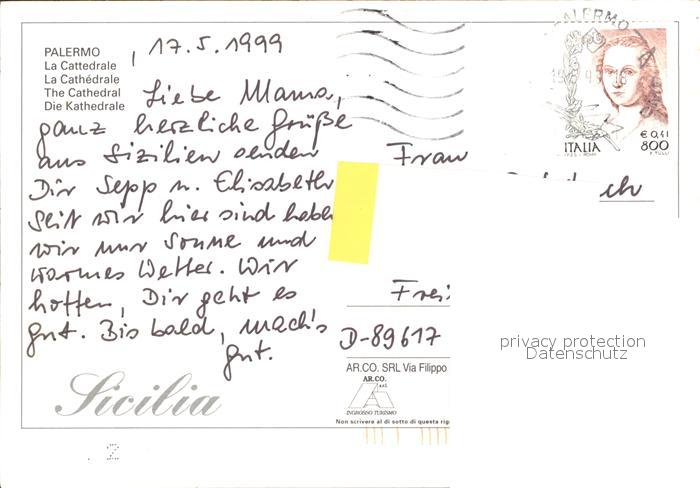 PALERMO
La Cattedrale
La Cathédrale
The Cathedral
Die Kathedrale
, 17.5.1999
Liebe Mama,
ganz herzliche Grüße
aus Sizilien senden
Dir Sepp u. Elisabeth
Seit wir hier sind haben
wir nur Sonne und
warmes Wetter. Wir
hoffen, Dir geht es
gut. Bis bald, mach's
gut.
Sicilia
PALERMO
ITALIA
€ 0,41
800
Frau
ch
Frei
D-89617
privacy protection
Datenschutz
AR.CO. SRL Via Filippo
AR.CO.
s.r.l.
INGROSSO TURISMO
Non scrivere al di sotto di questa rig
2